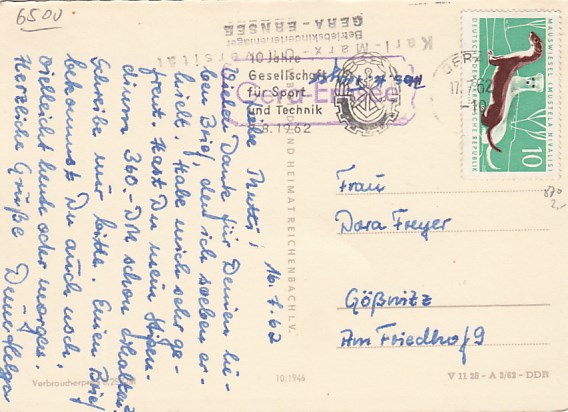 6500.
Betriebskinderferienlager
GERA - ERNSEE
Karl - Marx -
10 Jahre
Gesellschaft
für Sport
und Technik
8.1962
Gera-Ernsee
GERA
17. 62
-10
MAUSWIESEL (MUSTELA NIVALIS)
DEUTSCHE DEMOKRATISCHE REPUBLIK
10
16.7.62
Liebe Mutti!
Vielen Dank für Deinen lie-
ben Brief, den ich soeben er-
hielt. Habe mich sehr ge-
freut. Hast Du mein Stipen-
dium 360.-DM schon erhalten?
Schreib mir bitte. Einen Brief
bekommst Du auch noch,
vielleicht heute oder morgen.
Herzliche Grüße Deine Helga
Frau
Dora Freyer
Gößnitz
Am Friedhof 9
UND HEIMAT REICHENBACH I. V.
Verbraucherpreis
10/1946
V 11 28 - A 3/62 - DDR
870
2,-